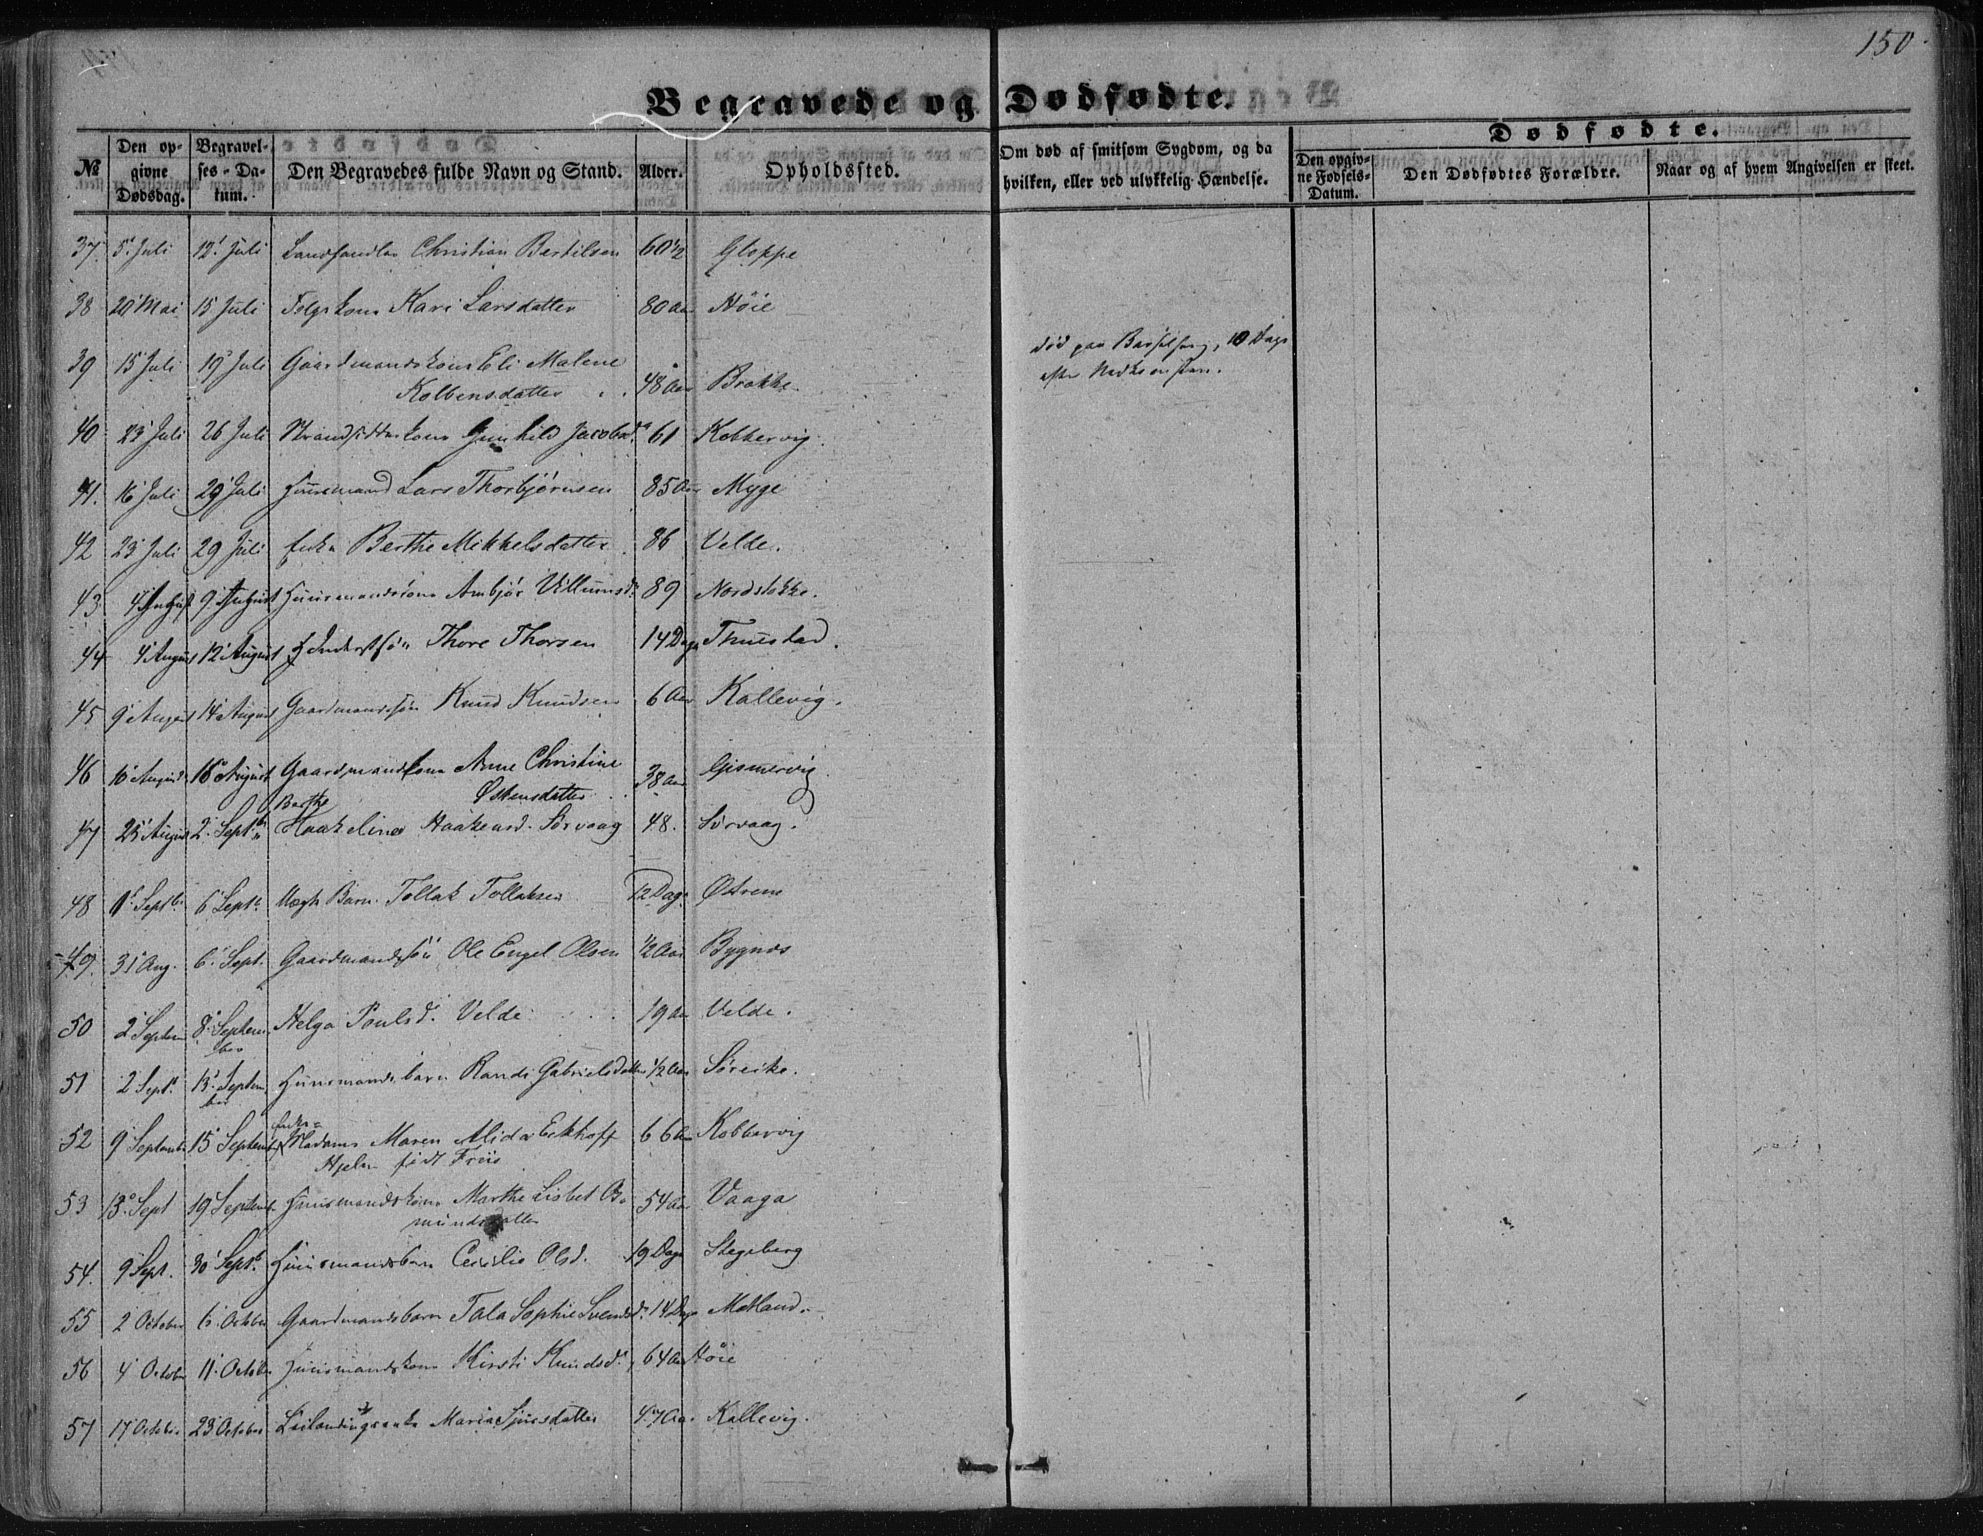 150
Begravede og Dødfødte.
Dødfødte.
№ | Den opgivne Dødsdag. | Begravelses-Datum. | Den Begravedes fulde Navn og Stand. | Alder. | Opholdssted. | Om død af smitsom Sygdom, og da hvilken, eller ved ulykkelig Hændelse. | Den opgivne Fødsels-Datum. | Den Dødfødtes Forældre. | Naar og af hvem Angivelsen er skeet.
37 5 Juli 12 Juli Christian Bertilsen 60 1/2 Gloppe
38 20 Mai 15 Juli Kari Larsdatter 80 Aar Høie
39 15 Juli 19 Juli Gaardmandskone Eli Malene
Kolbensdatter 48 Aar Brække død paa Barselseng, 10 Dage
efter
40 23 Juli 26 Juli Strandsidderkone Gunhild Jacobsd. 61 Kobbervig
41. 16 Juli 29 Juli Huusmand Lars Thorbjørnsen 85 Aar Myge
42 23 Juli 29 Juli Enke Berthe Mikkelsdatter 86 Velde.
43 4 August 9 August Huusmandskone Anbjør Villumsd. 89 Nordstokke.
44 4 August 12 August Thore Thorsen 14 Dage Thuestad.
45 9 August 14 August Gaardmandssøn Knud Knudsen 6 Aar Kallevig.
46 10 August 16 August Gaardmandskone Anne Christine
Østensdatter 38 Aar Gismervig.
Berthe
47 25 August 2 Septbr Haakeline Haakensd. Sørvaag 48. Sørvaag.
48 1 Septbr. 6 Septb. Barn Tollak Tollaksen 12 Dage Østrem
49. 31 Aug. 6 Sept. Gaardmandssøn Ole Engel Olsen 1/2 Aar Bygnes
50 2 Septem 8 Septem
ber Helga Poulsd. Velde 19 Aar Velde.
51 2 Sept. 13 Septem
ber Huusmands barn Randi Gabrielsdatter 1/2 Aar Søreike.
Enke-
52 9 Septembr 15 Septembr Madame Maren Alida Eckhoff 66 Aar Kobbervig
Hjelm født Friis
53 13 Sept 19 Septembr Huusmandskone Marthe Lisbet Os-
mundsdatter 54 Aar Vaaga
54. 9 Sept. 30 Septb. Huusmandsbarn Cecilie Olsd. 19 Dage Stegeberg
55 2 October 6 October Gaardmandsbarn Tala Sophie Svendsd. 14 Dage Matland.
56 4 October 11 October Huusmandskone Kirsti Knudsd. 64 Aar Høie
57 17 October 23 October Leilændingsenke Maria Sjursdatter 47 Aar Kallevig.